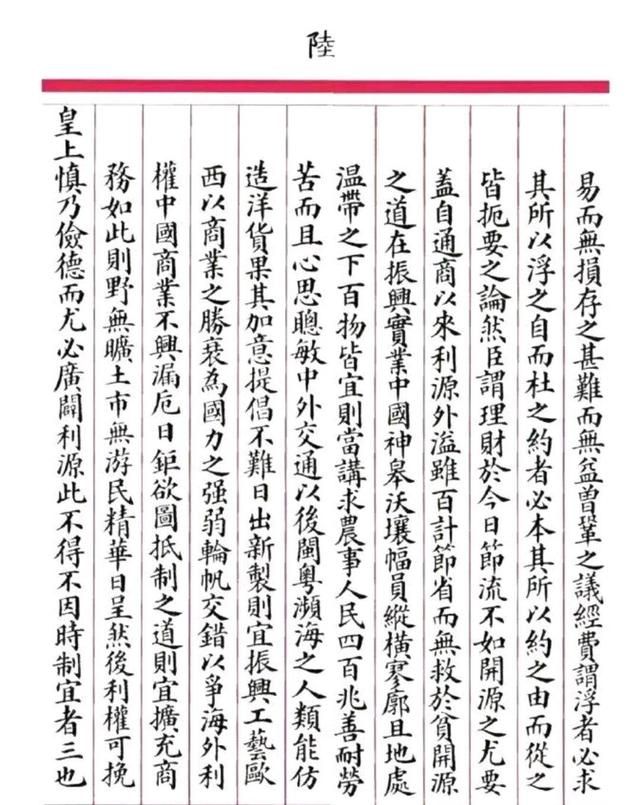 陸
易而無損存之甚難而無益曾鞏之議經費謂浮者必求
其所以浮之自而杜之約者必本其所以約之由而從之
皆扼要之論然臣謂理財於今日節流不如開源之尤要
蓋自通商以來利源外溢雖百計節省而無救於貧開源
之道在振興實業中國神皋沃壤幅員縱橫寥廓且地處
温帶之下百物皆宜則當講求農事人民四百兆善耐勞
苦而且心思聰敏中外交通以後閩粵瀕海之人類能仿
造洋貨果其加意提倡不難日出新製則宜振興工藝歐
西以商業之勝衰為國力之强弱輪帆交錯以爭海外利
權中國商業不興漏卮日鉅欲圖抵制之道則宜擴充商
務如此則野無曠土市無游民精華日呈然後利權可挽
皇上慎乃儉德而尤必廣闢利源此不得不因時制宜者三也